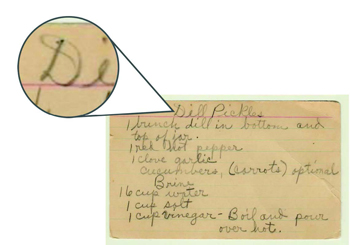 Di
Dill Pickles
1 bunch dill in bottom and
top of jar.
1 red hot pepper
1 clove garlic
cucumbers, (carrots) optional
Brine
16 cup water
1 cup salt
1 cup vinegar - Boil and pour
over hot.